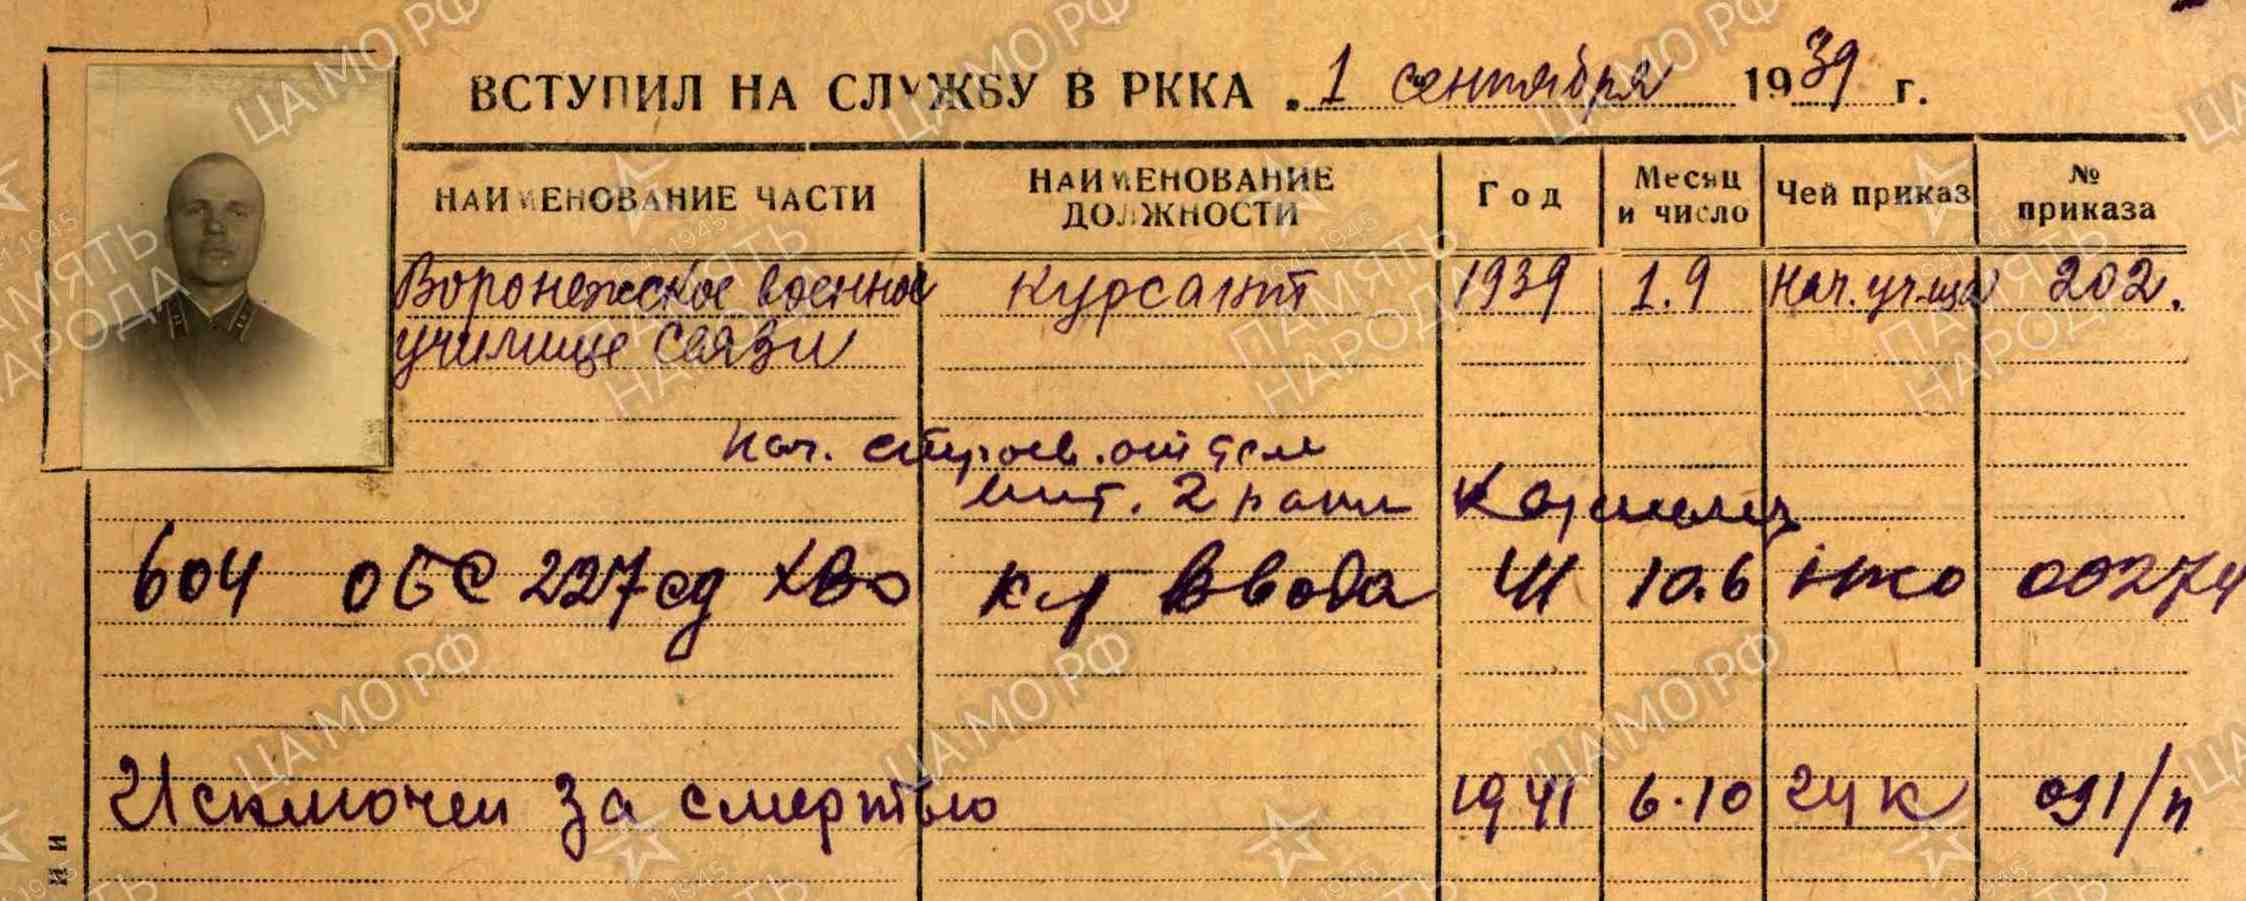 ВСТУПИЛ НА СЛУЖБУ В РККА „ 1 сентября 1939 г.
НАИМЕНОВАНИЕ ЧАСТИ НАИМЕНОВАНИЕ ДОЛЖНОСТИ Год Месяц и число Чей приказ № приказа
Воронежское военное курсант 1939 1.9 Нач. уч-ща 202.
училище связи
Нач. строев. отдел
инт. 2 ранг
604 ОБС 227 сд ХВО к-р взвода 41 10.6 НКО 00274
Исключен за смертью 1941 6.10 ГУК 091/п
ии
ЦАМО.РФ
ПАМЯТЬ
НАРОДА